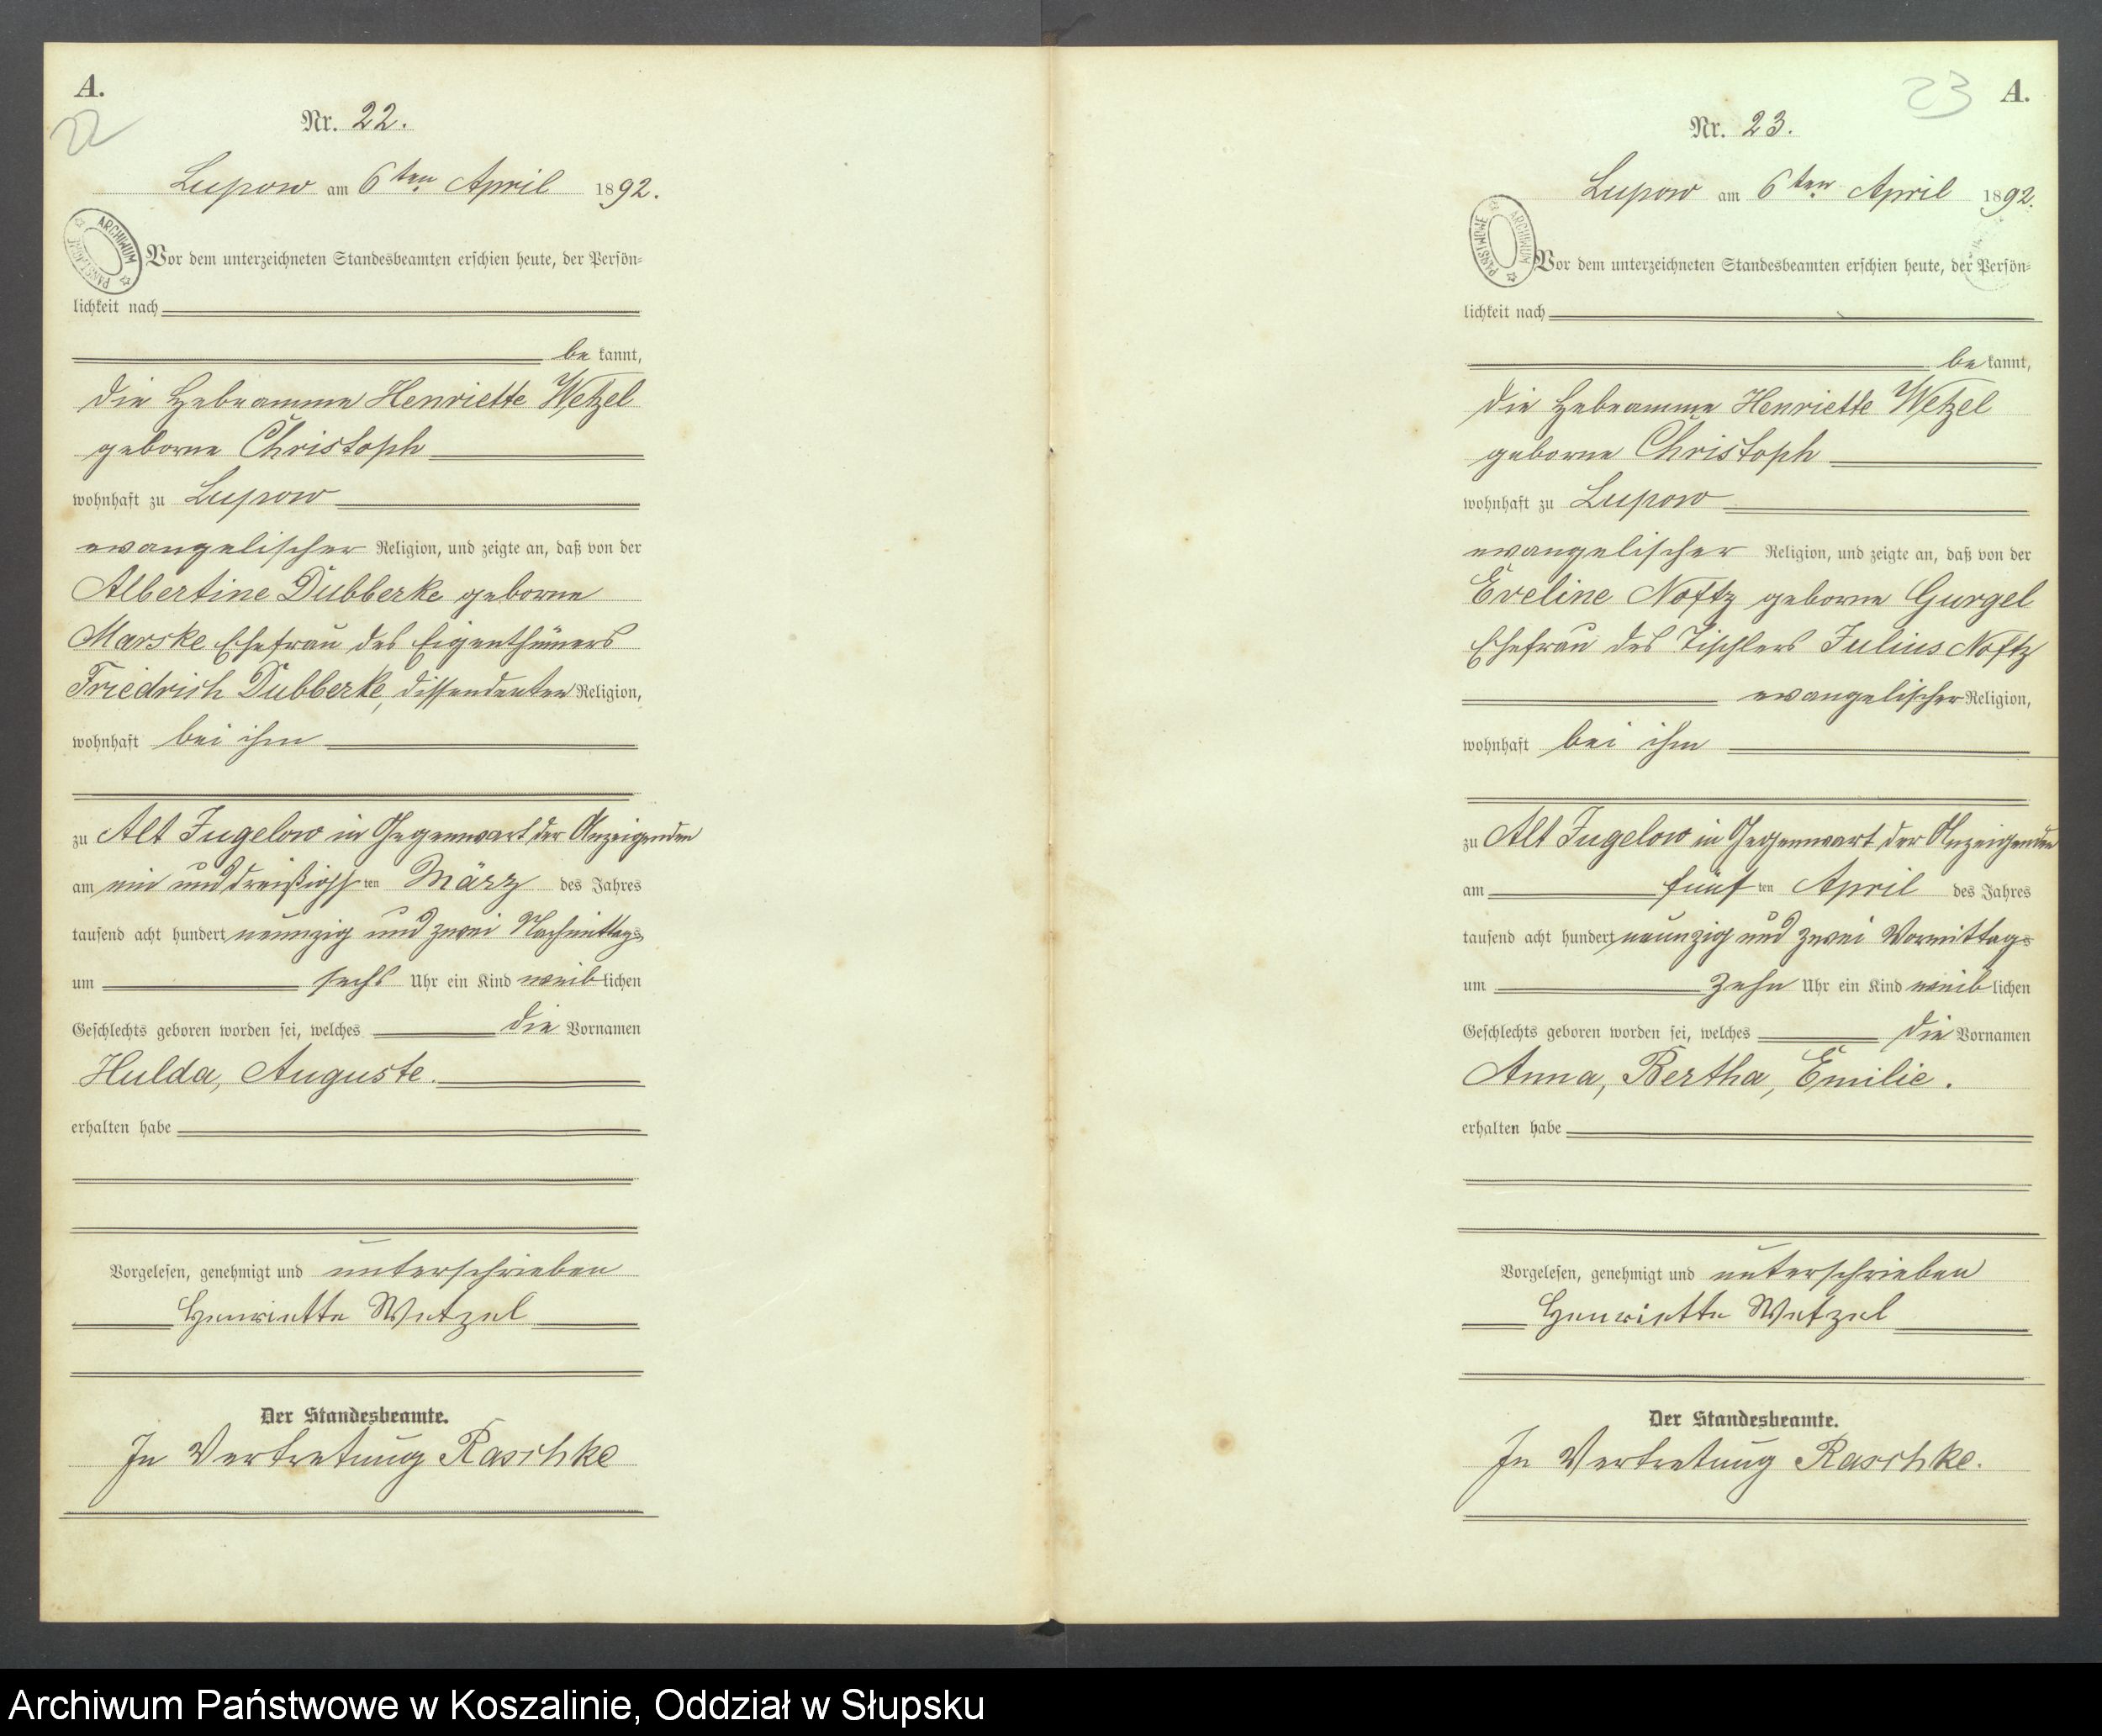 A.
22
Nr. 22.
Lupow am 6ten April 1892.
ARCHIWUM PAŃSTWOWE
Vor dem unterzeichneten Standesbeamten erschien heute, der Persön-
lichkeit nach
be kannt,
die Hebeamme Henriette Wetzel
geborne Christoph
wohnhaft zu Lupow
evangelischer Religion, und zeigte an, daß von der
Albertine Dubberke geborne
Marske Ehefrau des Eigenthümers
Friedrich Dubberke, dissendenten Religion,
wohnhaft bei ihm
zu Alt Jugelow in Gegenwart der Anzeigenden
am ein und dreißigsten März des Jahres
tausend acht hundert neunzig und zwei Nachmittags
um sechs Uhr ein Kind weiblichen
Geschlechts geboren worden sei, welches die Vornamen
Hulda, Auguste.
erhalten habe
Vorgelesen, genehmigt und unterschrieben
Henriette Wetzel
Der Standesbeamte.
In Vertretung Raschke
23
A.
Nr. 23.
Lupow am 6ten April 1892.
ARCHIWUM PAŃSTWOWE
Vor dem unterzeichneten Standesbeamten erschien heute, der Persön-
lichkeit nach
be kannt,
die Hebeamme Henriette Wetzel
geborne Christoph
wohnhaft zu Lupow
evangelischer Religion, und zeigte an, daß von der
Eveline Noftz geborne Gurgel
Ehefrau des Tischlers Julius Noftz
evangelischer Religion,
wohnhaft bei ihm
zu Alt Jugelow in Gegenwart der Anzeigenden
am fünften April des Jahres
tausend acht hundert neunzig und zwei Vormittags
um zehn Uhr ein Kind weiblichen
Geschlechts geboren worden sei, welches die Vornamen
Anna, Bertha, Emilie.
erhalten habe
Vorgelesen, genehmigt und unterschrieben
Henriette Wetzel
Der Standesbeamte.
In Vertretung Raschke.
Archiwum Państwowe w Koszalinie, Oddział w Słupsku